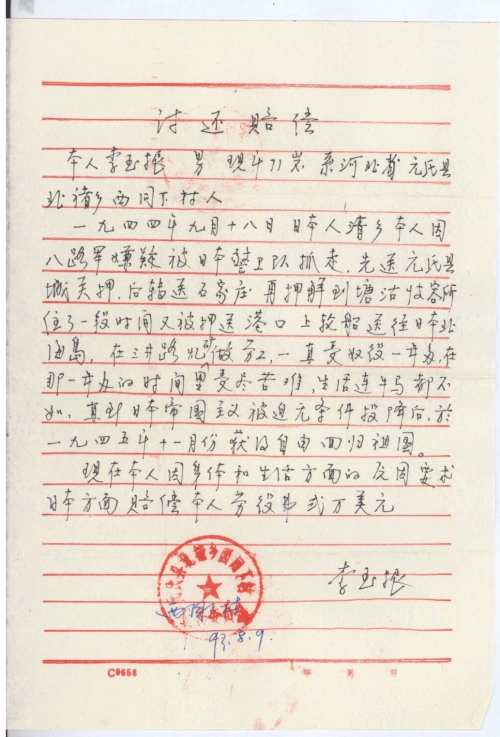 讨还赔偿
本人李玉振 男 现年71岁 系河北省元氏县
北褚乡西同下村人
一九四四年九月十八日 日本人清乡本人因
八路军嫌疑被日本警卫队抓走，先送元氏县
城关押，后转送石家庄 再押解到塘沽收容所
住了一段时间又被押送港口上轮船送往日本北
海岛，在三井路矿做劳工，一直受奴役一年多，在
那一年多的时间里受尽苦难，生活连牛马都不
如，直到日本帝国主义被迫无条件投降后，於
一九四五年十一月份获得自由而归祖国。
现在本人因身体和生活方面的原因要求
日本方面赔偿本人劳役费贰万美元
李玉振
93.8.9.
C0658
年 月 日